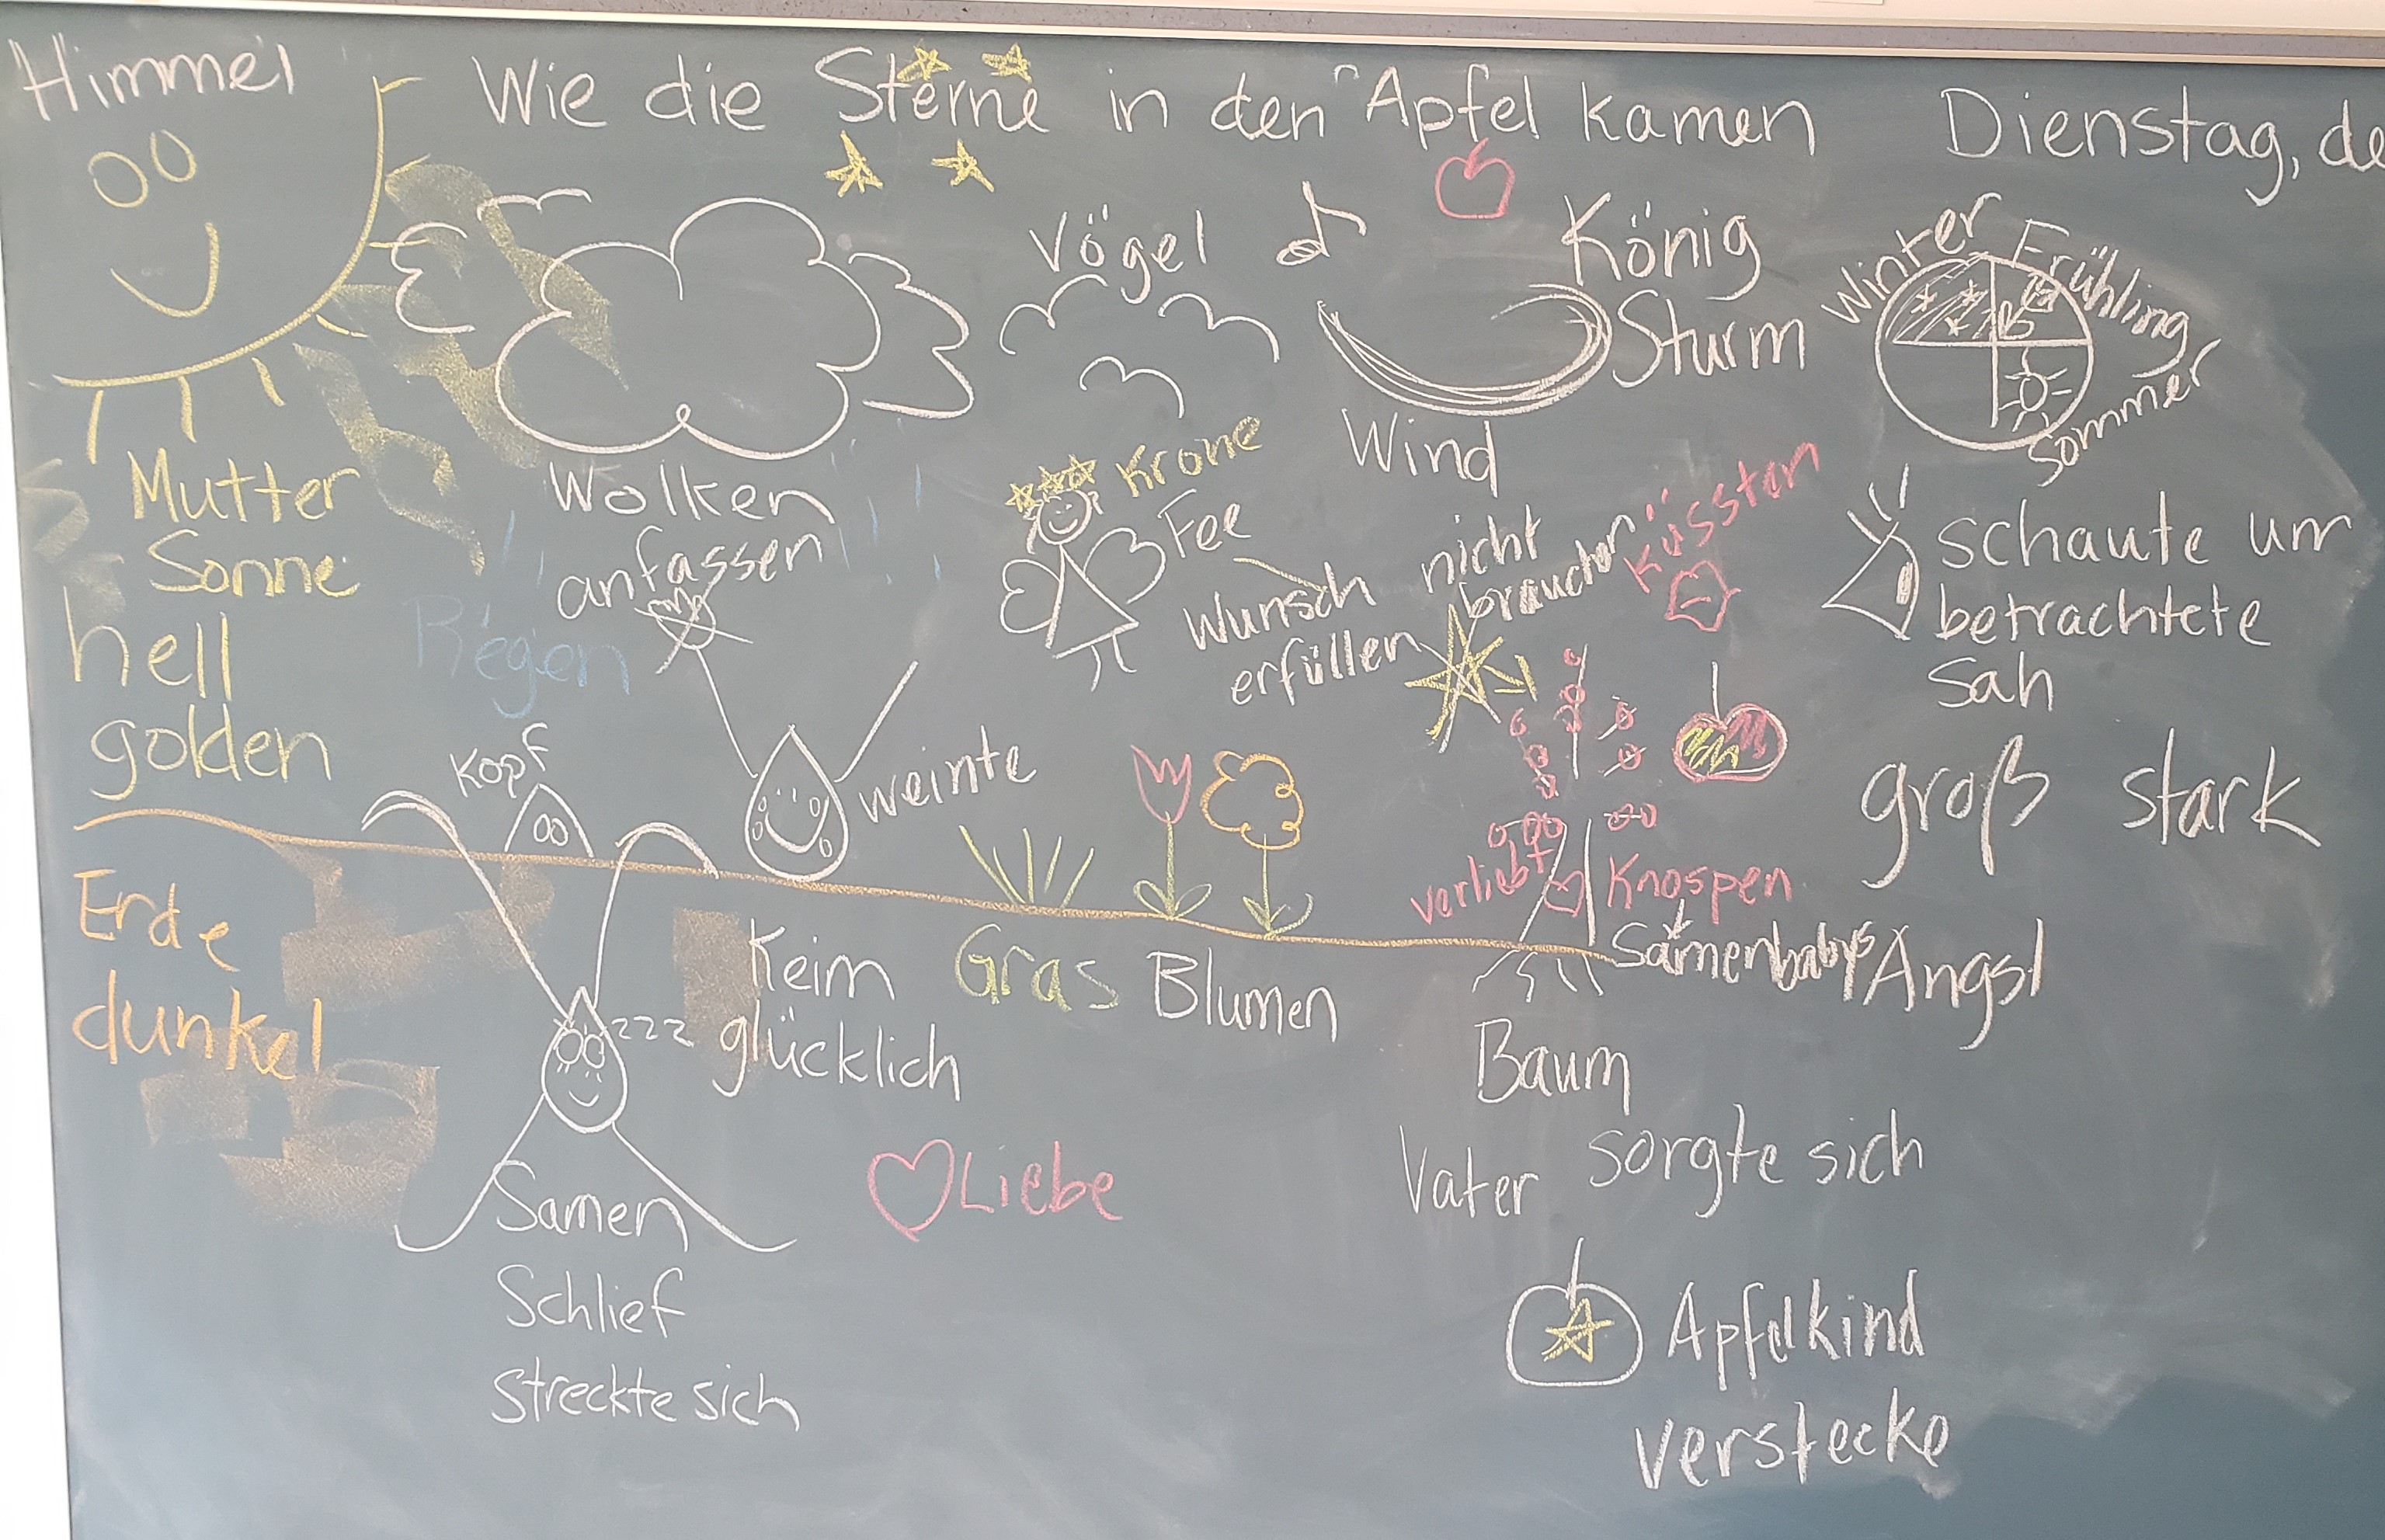 Himmel
Wie die Sterne in den Apfel kamen
Dienstag, de
Vögel
König
Sturm
Wind
Winter
Frühling
Sommer
Mutter
Sonne
hell
golden
Wolken
anfassen
Regen
Krone
Fee
Wunsch
erfüllen
nicht
brauchten
küssten
schaute um
betrachtete
sah
groß stark
Kopf
weinte
verliebt
Knospen
Samenbabys
Angst
Erde
dunkel
Keim
glücklich
Gras
Blumen
zzz
Baum
Vater
sorgte sich
Liebe
Samen
Schlief
streckte sich
Apfelkind
verstecke